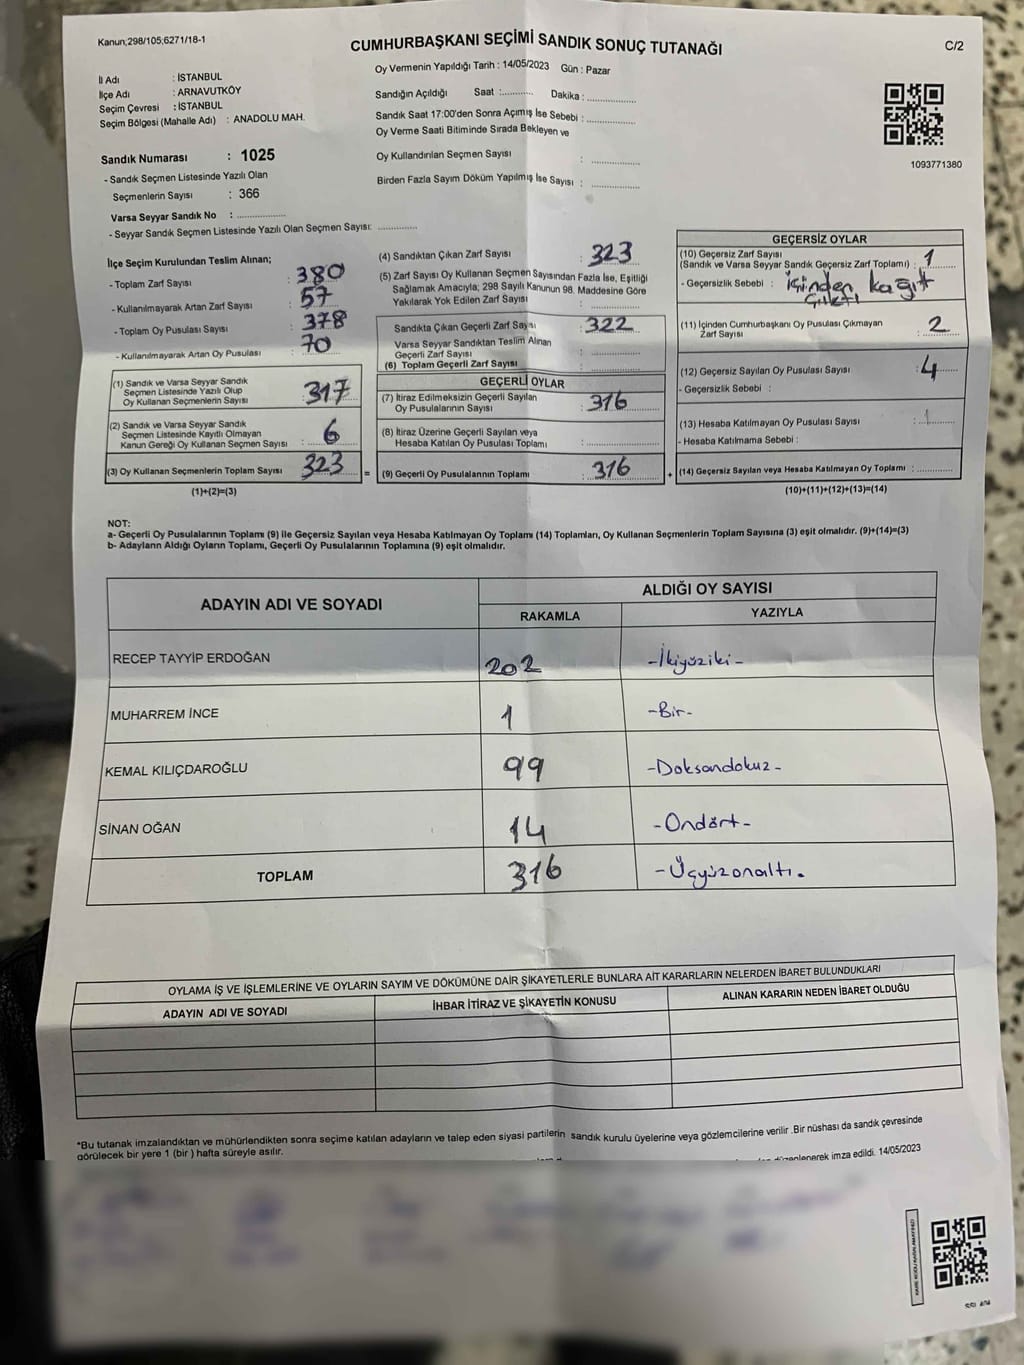 Kanun;298/105;6271/18-1
CUMHURBAŞKANI SEÇİMİ SANDIK SONUÇ TUTANAĞI
C/2
Oy Vermenin Yapıldığı Tarih : 14/05/2023 Gün : Pazar
İl Adı : İSTANBUL
İlçe Adı : ARNAVUTKÖY
Seçim Çevresi : İSTANBUL
Seçim Bölgesi (Mahalle Adı) : ANADOLU MAH.
Sandığın Açıldığı Saat :........... Dakika : ..................
Sandık Saat 17:00'den Sonra Açımış İse Sebebi : ..................
Oy Verme Saati Bitiminde Sırada Bekleyen ve
Oy Kullandırılan Seçmen Sayısı : ..................
Birden Fazla Sayım Döküm Yapılmış İse Sayısı : ..................
1093771380
Sandık Numarası : 1025
- Sandık Seçmen Listesinde Yazılı Olan
Seçmenlerin Sayısı : 366
Varsa Seyyar Sandık No : ..................
- Seyyar Sandık Seçmen Listesinde Yazılı Olan Seçmen Sayısı: ..............
İlçe Seçim Kurulundan Teslim Alınan;
- Toplam Zarf Sayısı : 380
- Kullanılmayarak Artan Zarf Sayısı : 57
- Toplam Oy Pusulası Sayısı : 378
- Kullanılmayarak Artan Oy Pusulası : 70
(1) Sandık ve Varsa Seyyar Sandık
Seçmen Listesinde Yazılı Olup
Oy Kullanan Seçmenlerin Sayısı : 317
(2) Sandık ve Varsa Seyyar Sandık
Seçmen Listesinde Kayıtlı Olmayan
Kanun Gereği Oy Kullanan Seçmen Sayısı : 6
(3) Oy Kullanan Seçmenlerin Toplam Sayısı : 323
(1)+(2)=(3)
=
(4) Sandıktan Çıkan Zarf Sayısı : 323
(5) Zarf Sayısı Oy Kullanan Seçmen Sayısından Fazla İse, Eşitliği
Sağlamak Amacıyla; 298 Sayılı Kanunun 98. Maddesine Göre
Yakılarak Yok Edilen Zarf Sayısı : ..................
Sandıkta Çıkan Geçerli Zarf Sayısı : 322
Varsa Seyyar Sandıktan Teslim Alınan
Geçerli Zarf Sayısı : ..................
(6) Toplam Geçerli Zarf Sayısı : ..................
GEÇERLİ OYLAR
(7) İtiraz Edilmeksizin Geçerli Sayılan
Oy Pusulalarının Sayısı : 316
(8) İtiraz Üzerine Geçerli Sayılan veya
Hesaba Katılan Oy Pusulası Toplamı : ..................
(9) Geçerli Oy Pusulalarının Toplamı : 316
+
GEÇERSİZ OYLAR
(10) Geçersiz Zarf Sayısı
(Sandık ve Varsa Seyyar Sandık Geçersiz Zarf Toplamı) : 1
- Geçersizlik Sebebi : içinden kağıt
çıktı
(11) İçinden Cumhurbaşkanı Oy Pusulası Çıkmayan
Zarf Sayısı : 2
(12) Geçersiz Sayılan Oy Pusulası Sayısı : 4
- Geçersizlik Sebebi :
(13) Hesaba Katılmayan Oy Pusulası Sayısı :
- Hesaba Katılmama Sebebi :
(14) Geçersiz Sayılan veya Hesaba Katılmayan Oy Toplamı : ............
(10)+(11)+(12)+(13)=(14)
NOT:
a- Geçerli Oy Pusulalarının Toplamı (9) ile Geçersiz Sayılan veya Hesaba Katılmayan Oy Toplamı (14) Toplamları, Oy Kullanan Seçmenlerin Toplam Sayısına (3) eşit olmalıdır. (9)+(14)=(3)
b- Adayların Aldığı Oyların Toplamı, Geçerli Oy Pusulalarının Toplamına (9) eşit olmalıdır.
ADAYIN ADI VE SOYADI
ALDIĞI OY SAYISI
RAKAMLA YAZIYLA
RECEP TAYYİP ERDOĞAN 202 -İkiyüziki-
MUHARREM İNCE 1 -Bir-
KEMAL KILIÇDAROĞLU 99 -Doksandokuz-
SİNAN OĞAN 14 -Ondört-
TOPLAM 316 -Üçyüzonaltı.
OYLAMA İŞ VE İŞLEMLERİNE VE OYLARIN SAYIM VE DÖKÜMÜNE DAİR ŞİKAYETLERLE BUNLARA AİT KARARLARIN NELERDEN İBARET BULUNDUKLARI
ADAYIN ADI VE SOYADI İHBAR İTİRAZ VE ŞİKAYETİN KONUSU ALINAN KARARIN NEDEN İBARET OLDUĞU
*Bu tutanak imzalandıktan ve mühürlendikten sonra seçime katılan adayların ve talep eden siyasi partilerin sandık kurulu üyelerine veya gözlemcilerine verilir .Bir nüshası da sandık çevresinde
görülecek bir yere 1 (bir ) hafta süreyle asılır.
düzenlenerek imza edildi. 14/05/2023